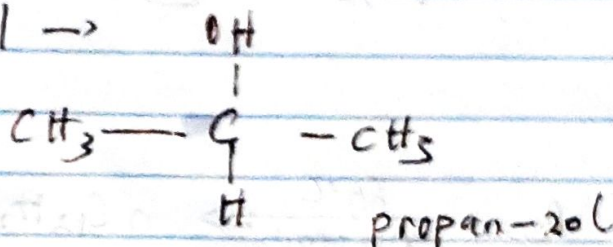 1 → OH
CH₃ — C — CH₃
H
propan-2ol